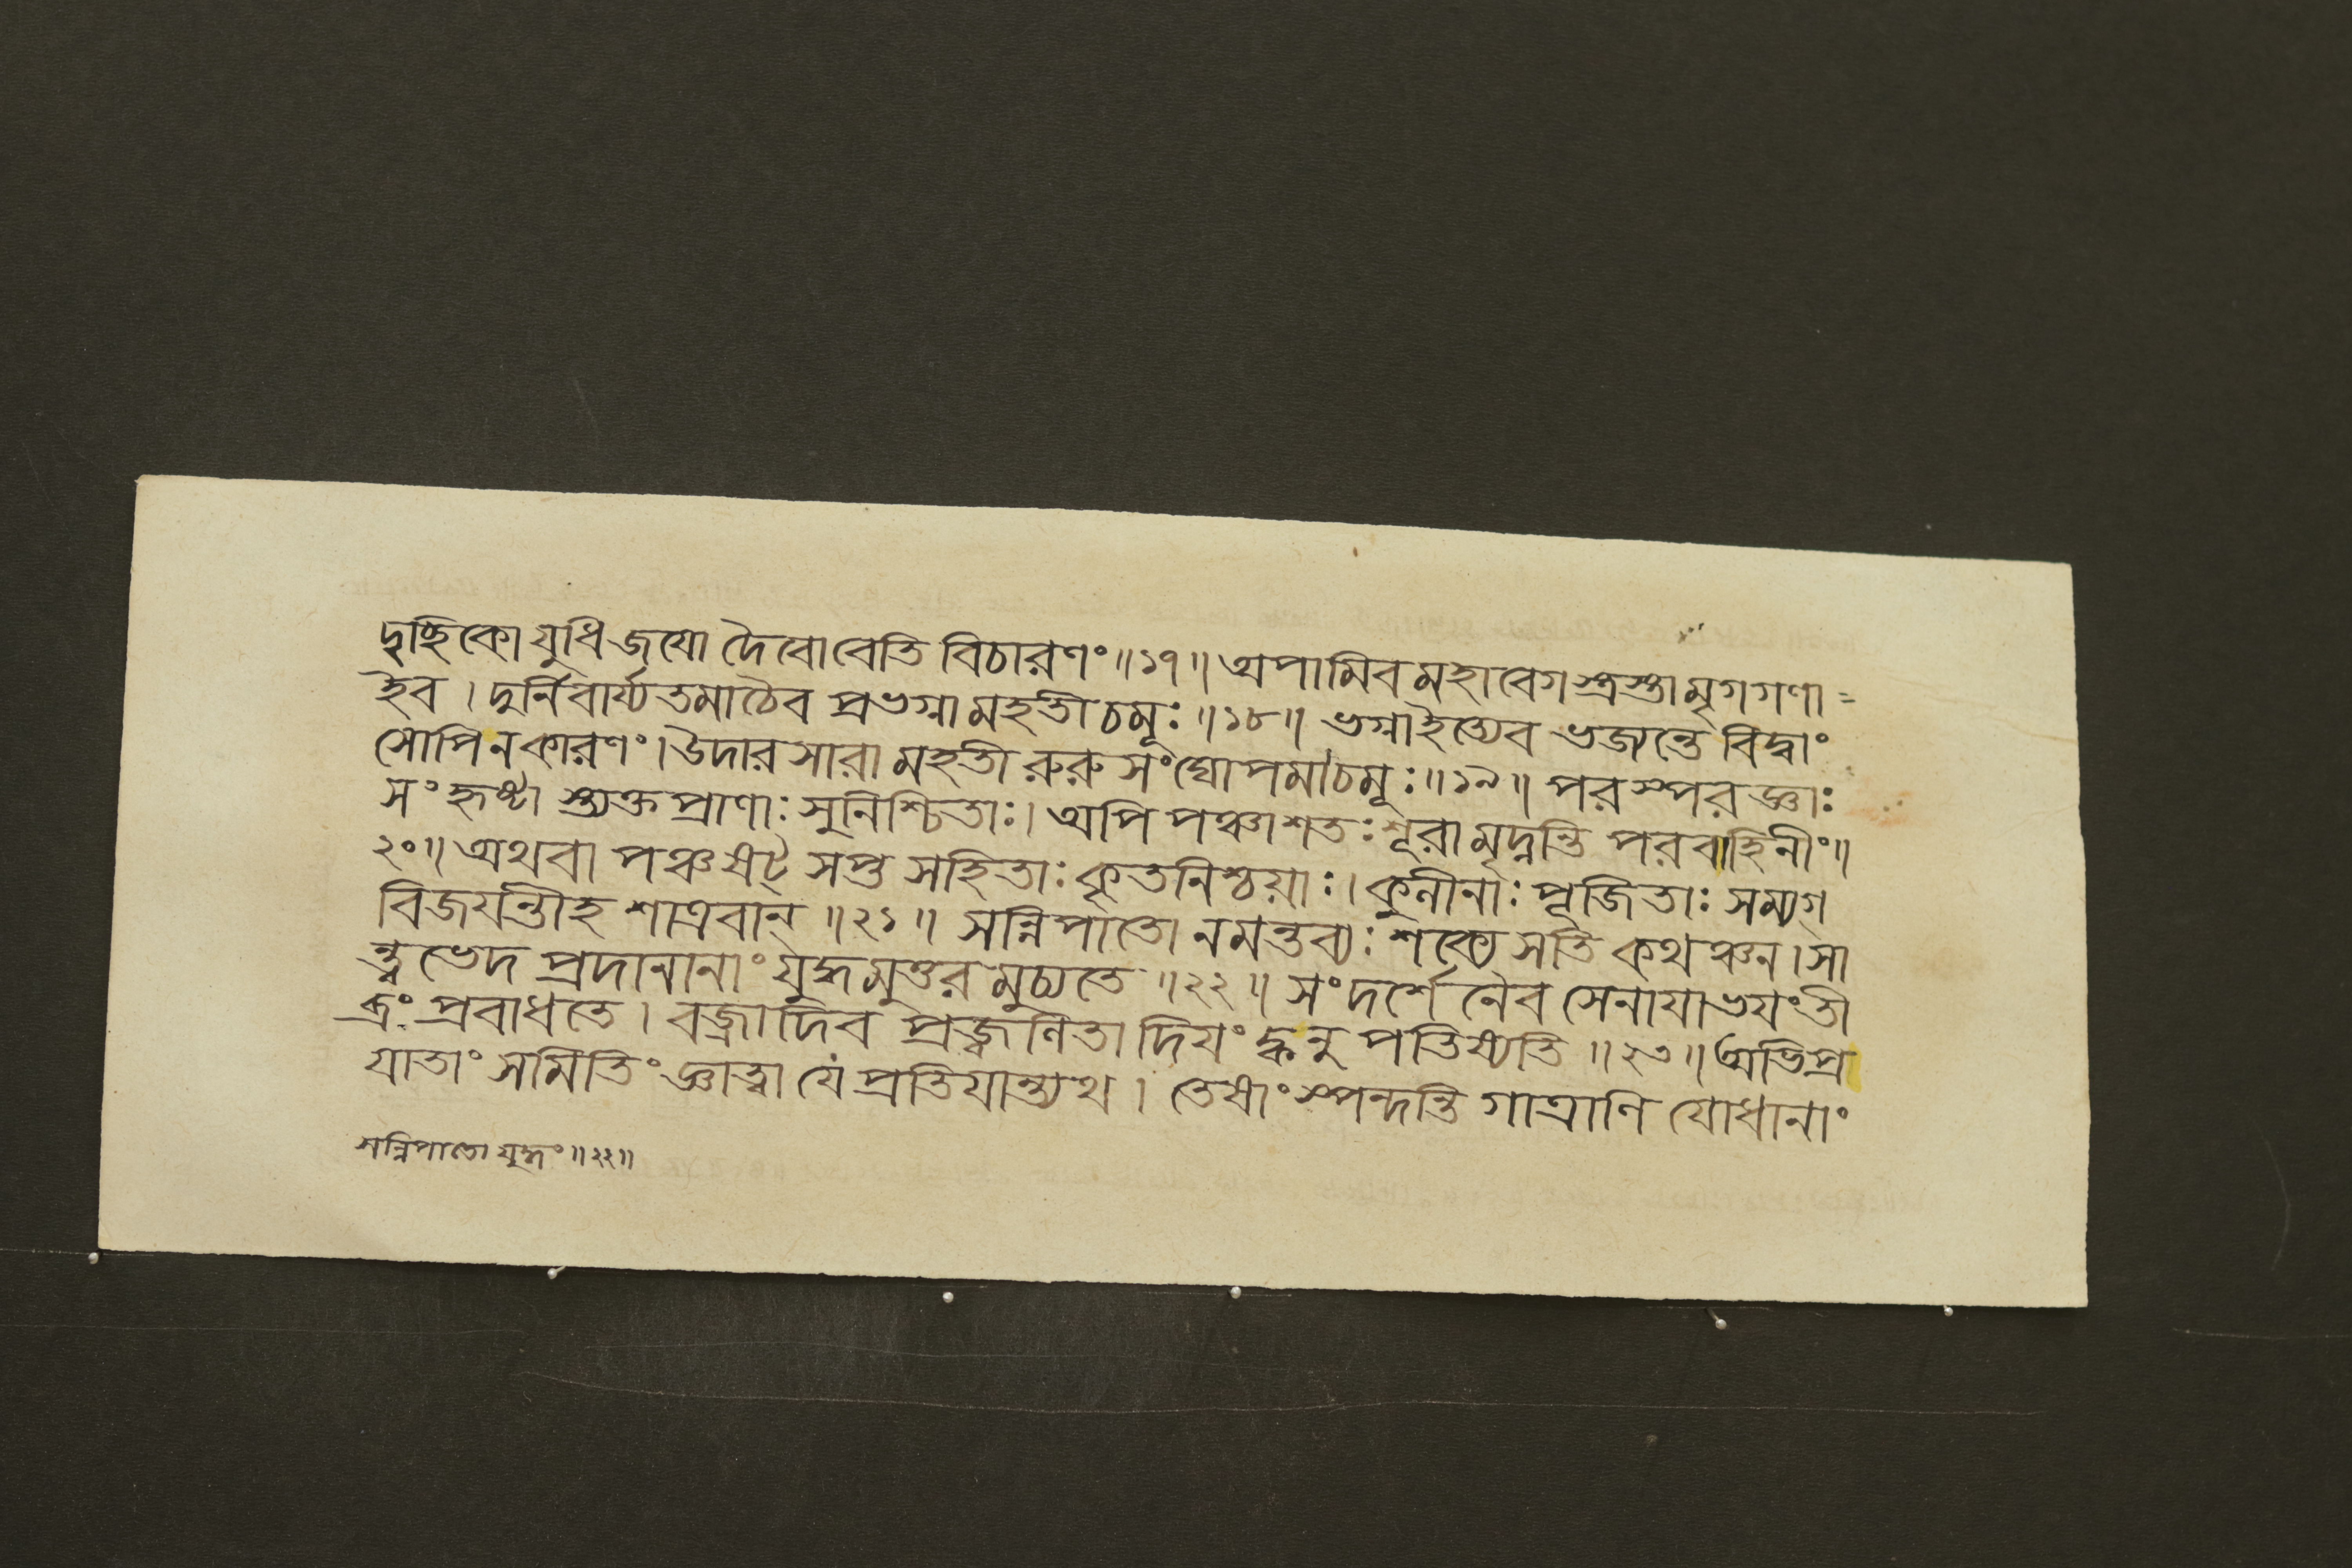 দৃচ্ছিকো যুধি জযো দৈবো বেতি বিচারণং ॥১৭॥ অপামিব মহাবেগ স্ত্রস্তা মৃগগণা =
ইব । দুর্নিবার্য্যতমা চৈব প্রভগ্না মহতী চমূঃ ॥১৮॥ ভগ্না ইত্যেব ভজ্যন্তে বিদ্বাং
সোপি ন কারণং । উদারসারা মহতী রুরুসংঘোপমা চমূঃ ॥১৯॥ পরস্পরজ্ঞাঃ
সংহৃষ্টা স্ত্যক্তপ্রাণাঃ সুনিশ্চিতাঃ । অপি পঞ্চাশতঃ শূরা মৃদ্নন্তি পরবাহিনীং ॥
২০॥ অথবা পঞ্চ ষট্ সপ্ত সহিতাঃ কৃতনিশ্চয়াঃ । কুনীনাঃ পূজিতাঃ সম্যগ্
বিজযন্তীহ শাত্রবান্ ॥২১॥ সন্নিপাতো ন মন্তব্যঃ শক্যে সতি কথঞ্চন । সা
ন্ত্বভেদপ্রদানানাং যুদ্ধমুত্তরমুচ্যতে ॥২২॥ সংদর্শেনৈব সেনাযা ভযং ভী
ত্রূং প্রবাধতে । বজ্রাদিব প্রজ্জ্বণিতাদিযং ক্বনু পতিষ্যতি ॥২৩॥ অভিপ্র
যাতাং সমিতিং জ্ঞাত্বা যে প্রতিযান্ত্যথ । তেষাং স্পন্দন্তি গাত্রাণি যোধানাং
সন্নিপাতো যুদ্ধং ॥২২॥